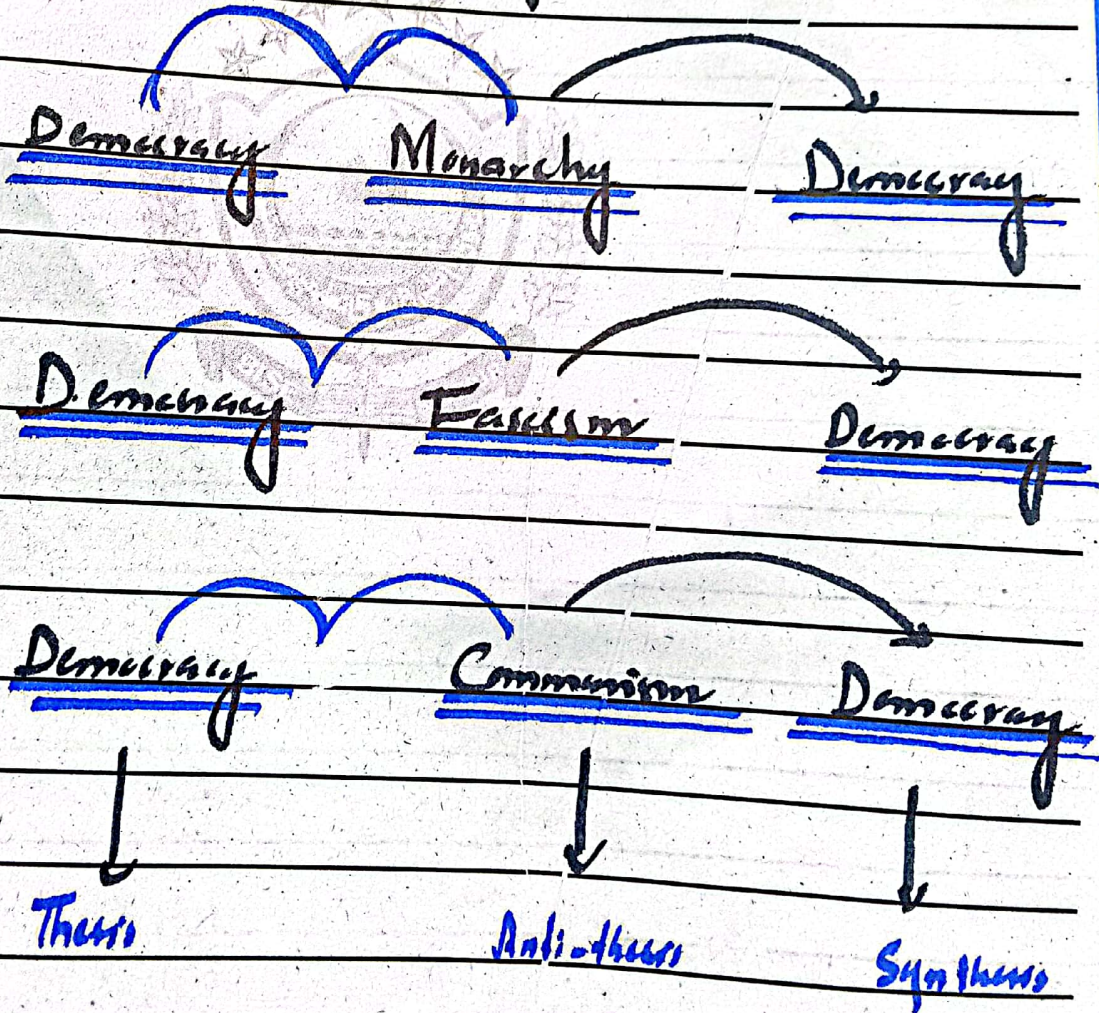 Democracy Monarchy Democray
Democracy Fascism Democracy
Democracy Communism Democray
Thesis Anti-thesis Synthesis